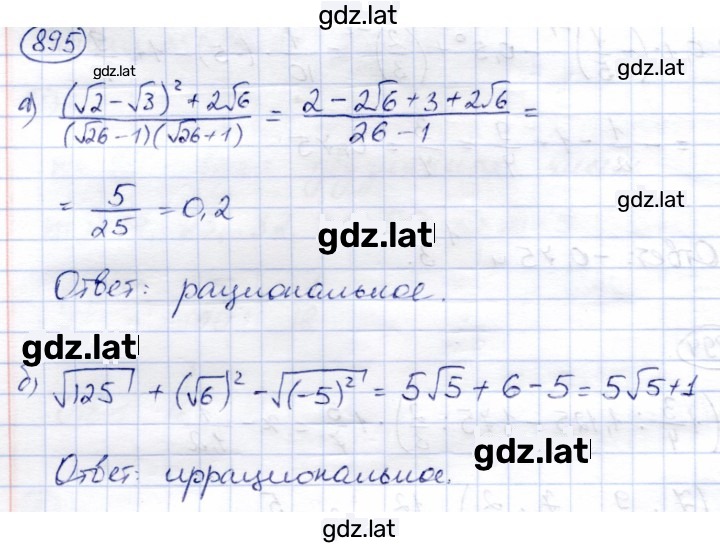 gdz.lat
895
gdz.lat
gdz.lat
а) ((√2 − √3)² + 2√6) / ((√26 − 1)(√26 + 1)) = (2 − 2√6 + 3 + 2√6) / (26 − 1) =
= 5/25 = 0,2
gdz.lat
gdz.lat
Ответ: рациональное.
gdz.lat
б) √125 + (√6)² − √(−5)² = 5√5 + 6 − 5 = 5√5 + 1
gdz.lat
Ответ: иррациональное.
gdz.lat